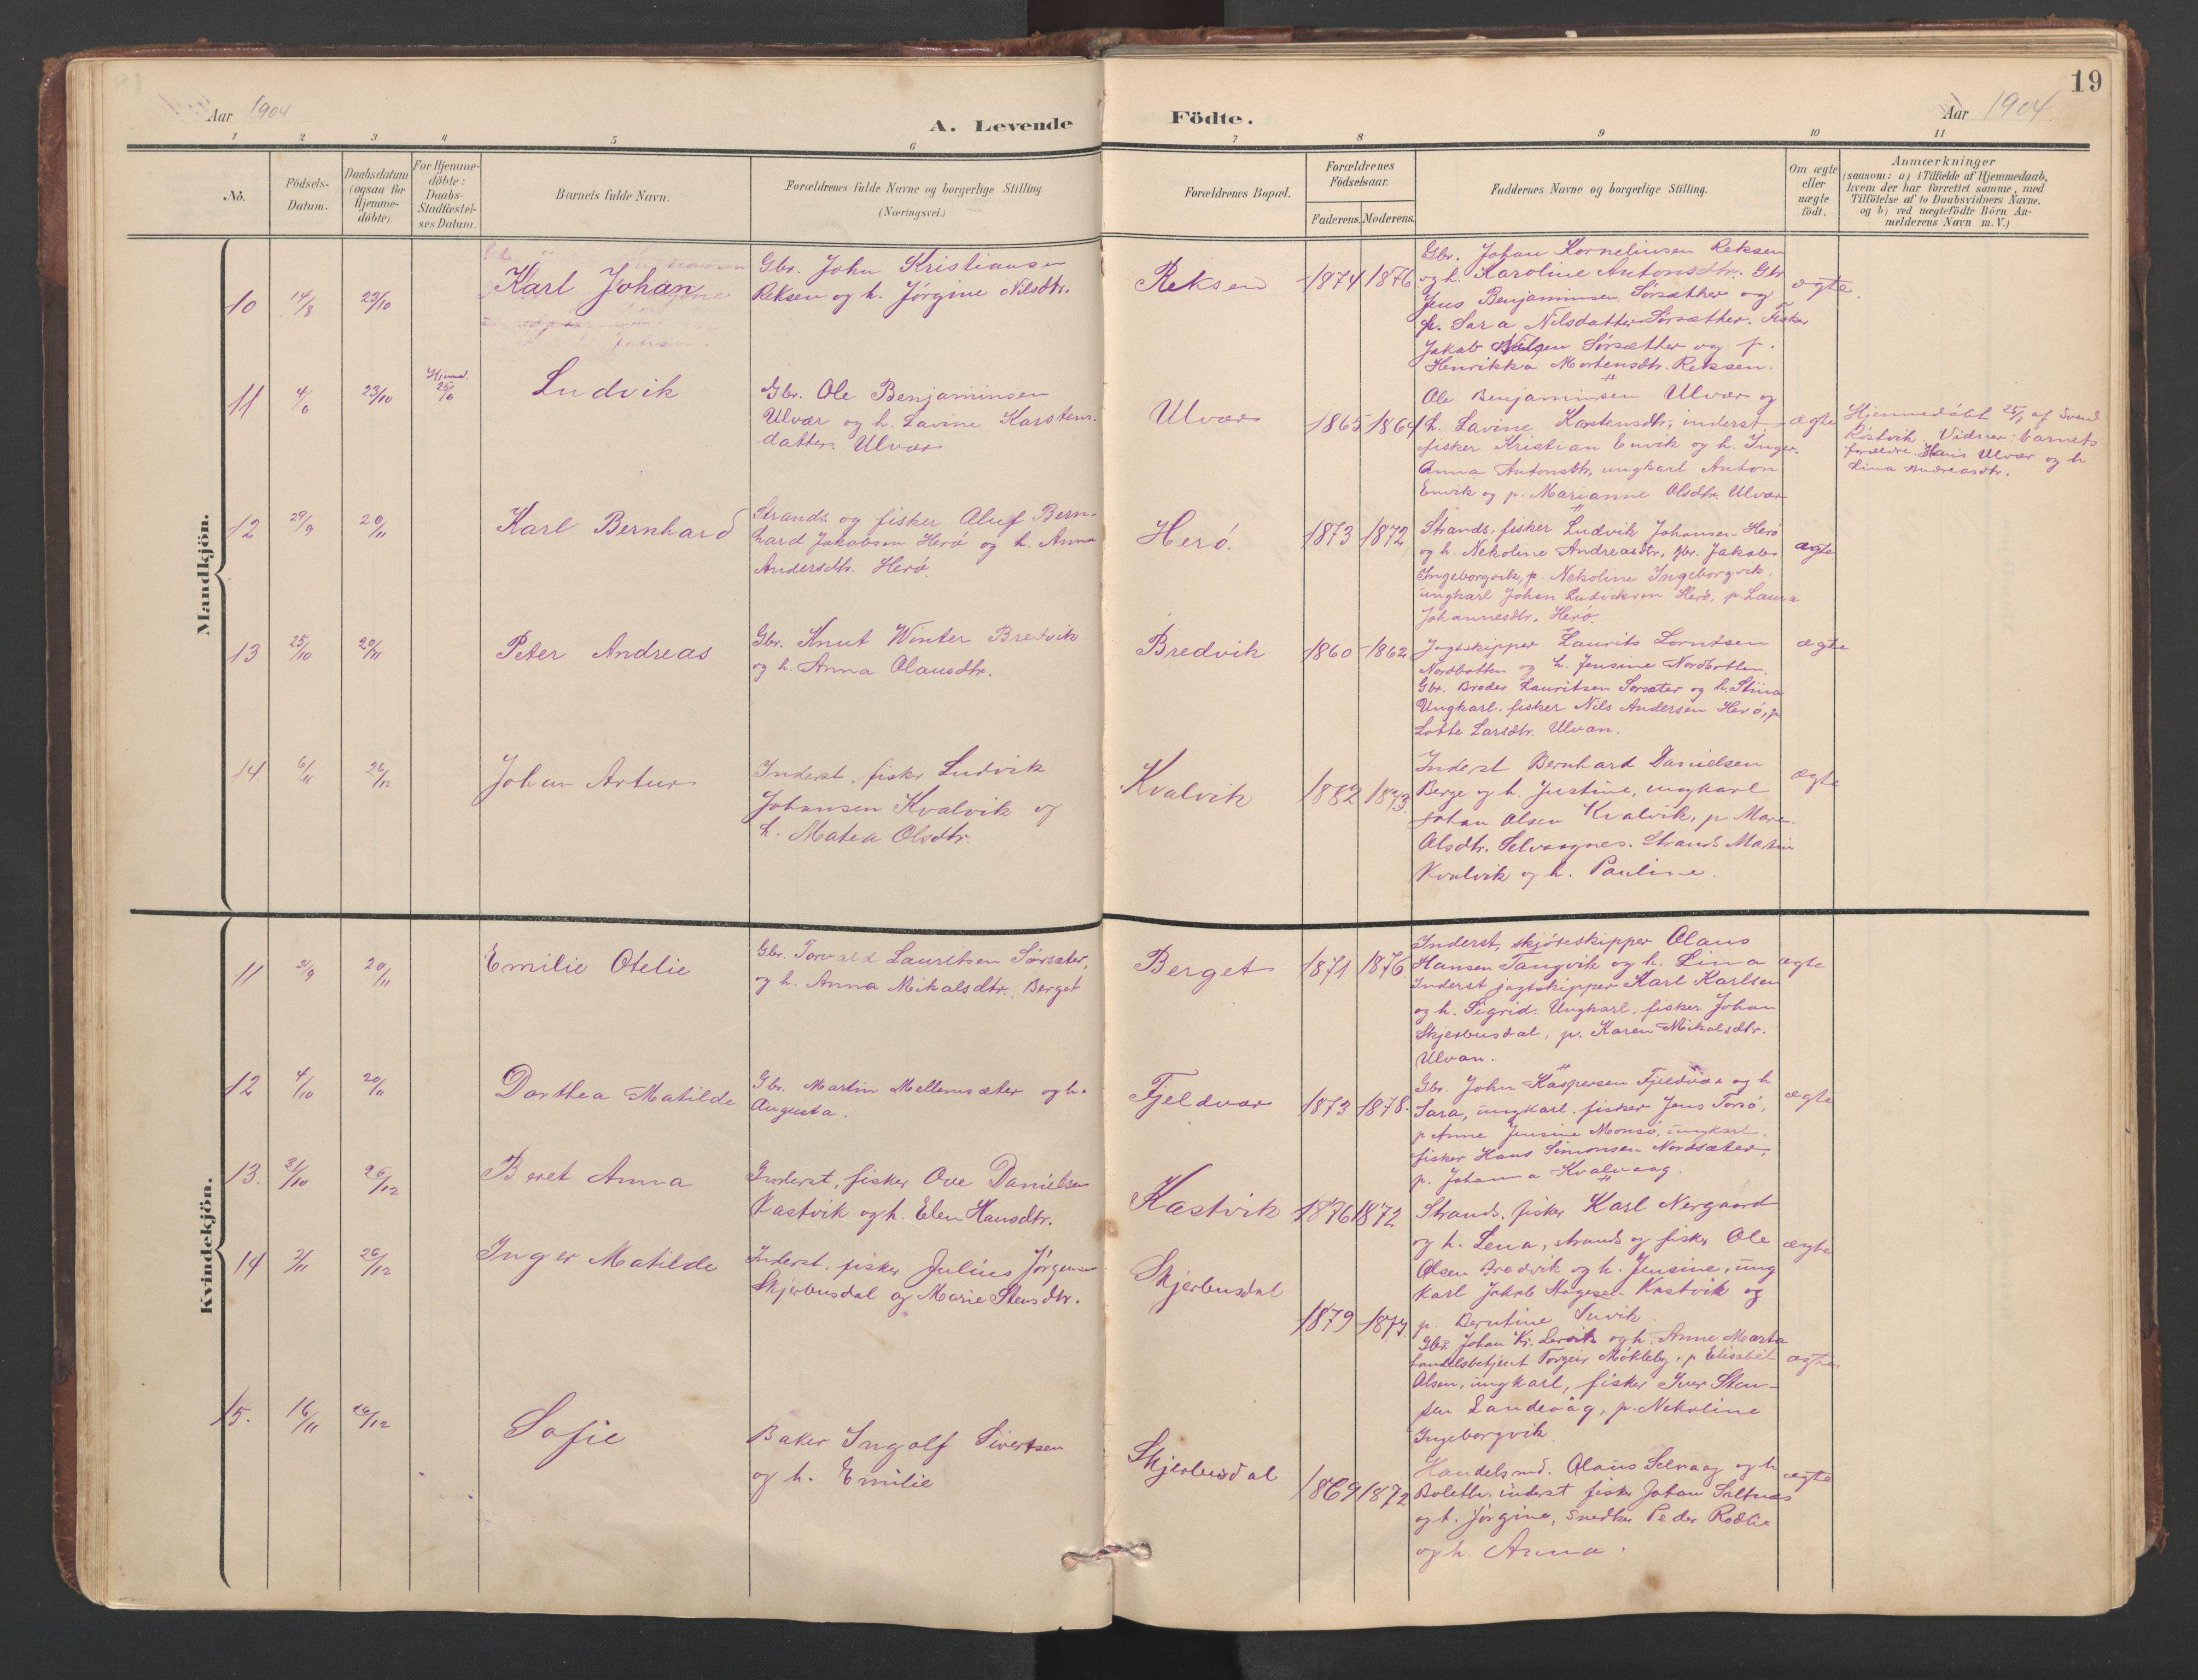 19
Aar 1904
A. Levende Födte.
Aar 1904.
1 2 3 4 5 6 7 8 9 10 11
No.
Födsels-
Datum.
Daabsdatum
(ogsaa for
Hjemme-
döbte).
For Hjemme-
döbte:
Daabs-
Stadfæstel-
ses Datum.
Barnets fulde Navn.
Forældrenes fulde Navne og borgerlige Stilling.
(Næringsvei.)
Forældrenes Bopæl.
Forældrenes
Födselsaar.
Faderens. Moderens.
Faddernes Navne og borgerlige Stilling.
Om ægte
eller
uægte
födt.
Anmærkninger
(saasom: a) i Tilfælde af Hjemmedaab,
hvem der har forrettet samme, med
Tilföielse af to Daabsvidners Navne.
og b) ved uægtefödte Börn An-
melderens Navn m. V.)
Mandkjön.
10 14/8 23/10
Karl Johan
Gbr. John Kristiansen
Reksen og h. Jørgine Nilsdtr.
Reksen
1874 1876
Gbr. Johan Kornelinsen Reksen
og h. Karoline Antonsdtr. Gbr
Jens Benjaminsen Sørsæther og
p. Sara Nilsdatter Sørsæther. Fisker
Jakob Sørsæther og p.
Henrikka Mortensdtr. Reksen.
ægte.
11 4/6 23/10
Hjemd.
25/6
Ludvik
Gbr. Ole Benjaminsen
Ulvær og h. Lavine Karstens-
datter Ulvær
Ulvær
1865 1864
Ole Benjaminsen Ulvær og
h. Lavine Kastensdtr, inderst
fisker Kristian Emvik og h. Inger
Anna Antonsdtr, ungkarl Anton
Emvik og p. Marianne Olsdtr. Ulvær
ægte
Hjemmedøbt 25/6 af Svend
Røstvik. Vidner: barnets
forældre. Hans Ulvær og h
Lina Andreasdtr.
12 29/9 20/11
Karl Bernhard
Strands og fisker Aluf Bern-
hard Jakobsen Herø og h. Anna
Andersdtr. Herø.
Herø.
1873 1872
Strands. fisker Ludvik Johansen Herø
og h. Nekoline Andreasdtr, gbr. Jakob
Ingeborgvik, p. Nekoline Ingeborgvik,
ungkarl Johan Ludviksen Herø, p. Laura
Johannesdtr. Herø.
ægte
13 25/10 20/11
Peter Andreas
Gbr. Knut Winter Bredvik
og h. Anna Olausdtr.
Bredvik
1860 1862
Jagtskipper Laurits Lorntsen
Nordbotten og h. Jensine Nordbotten.
Gbr. Broder Lauritsen Sørsæter og h. Stina
Ungkarl. fisker Nils Andersen Herø, p
Lotte Larsdtr. Ulvan.
ægte
14 6/11 26/12
Johan Artur
Inderst, fisker Ludvik
Johansen Kvalvik og
h. Matea Olsdtr.
Kvalvik
1882 1873.
Inderst Bernhard Danielsen
Berge og h. Justine, ungkarl
Johan Olsen Kvalvik, p Mare
Olsdtr. Selvaagnes. Strands Martin
Kvalvik og h. Pauline.
ægte
Kvindekjön.
11 2/9 20/11
Emilie Otelie
Gbr. Torvald Lauritsen Sørsæter,
og h. Anna Mikalsdtr. Berget
Berget
1871 1876
Inderst, skjøteskipper Olaus
Hansen Tangvik og h. Lina
Inderst jagtskipper Karl Karlsen
og h. Sigrid. Ungkarl. fisker Johan
Skjerbusdal, p. Karen Mikalsdtr.
Ulvan.
ægte
12 4/10 20/11
Dorthea Matilde
Gbr. Martin Mellemsæter og h.
Augusta.
Fjeldvær
1873 1878.
Gbr. John Kaspersen Fjeldvær og h
Sara, ungkarl. fisker Jens Torsø,
p Anne Jensine Monsø, ungkarl.
fisker Hans Simonsen Nordsæter
p. Johanna Kvalvaag.
ægte
13. 21/10 26/12
Beret Anna
Inderst, fisker Ove Danielsen
Kastvik og h. Elen Hansdtr.
Kastvik
1876 1872
Strands. fisker Karl Nergaard
og h. Lena, strands og fisker Ole
Olsen Bredvik og h. Jensine, ung
karl Jakob Kastvik og
p. Berntine
ægte
14 2/11 26/12
Inger Matilde
Inderst, fisker Julius Jørgensen
Skjerbusdal og Marie Stensdtr.
Skjerbusdal
1879 1877.
Gbr. Johan Kr. Lervik og h. Anne Marta
handelsbetjent Torgeir Møkleby, p Elisabet
Olsen, ungkarl, fisker Iver Sten-
sen Landevåg, p. Nekoline
Ingeborgvik.
ægte.
15. 16/11 26/12
Sofie
Baker Ingolf Sivertsen
og h. Emilie
Skjerbusdal
1869 1872
Handelsmd. Olaus Selvaag og h
Boleth. inderst fisker Johan Saltnes
og h. Jørgine, snedker Peder Rødlie
og h. Anna.
ægte